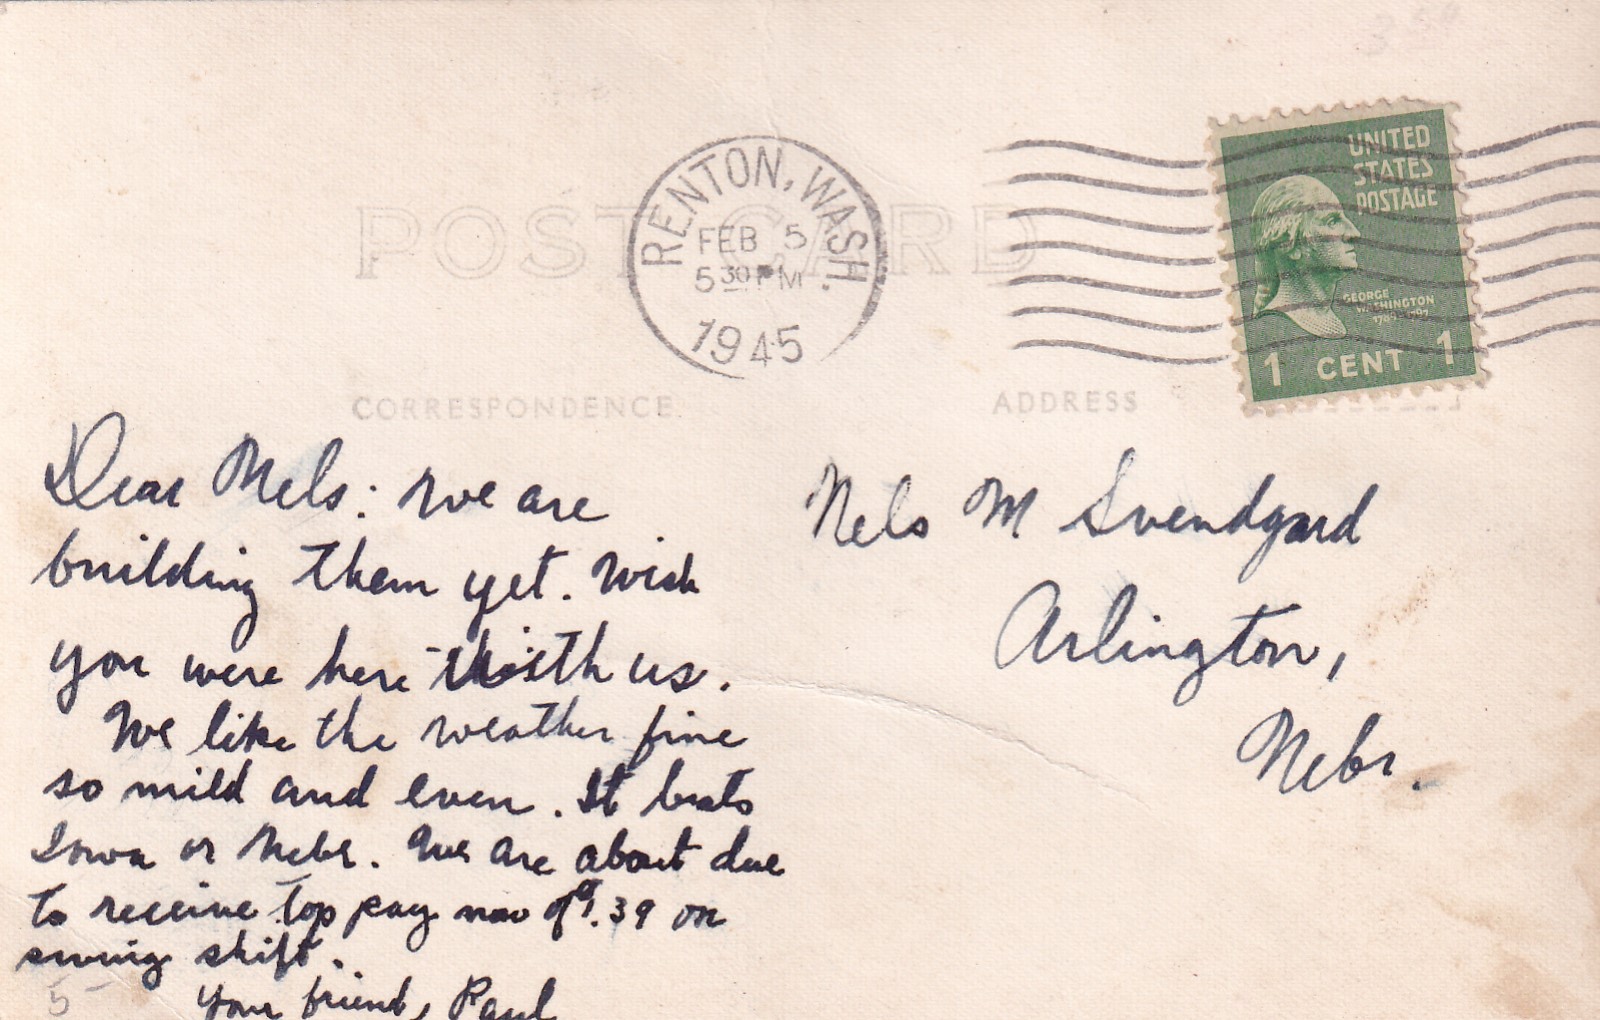 35¢
POST CARD
RENTON, WASH.
FEB 5
5 30 PM
1945
UNITED
STATES
POSTAGE
GEORGE
WASHINGTON
1789-1797
1 CENT 1
CORRESPONDENCE
ADDRESS
Dear Nels: We are
building them yet. Wish
you were here with us.
We like the weather fine
so mild and even. It beats
Iowa or Nebr. We are about due
to receive top pay now of 1.39 on
swing shift.
Your friend, Paul
5
Nels M Svendgard
Arlington,
Nebr.